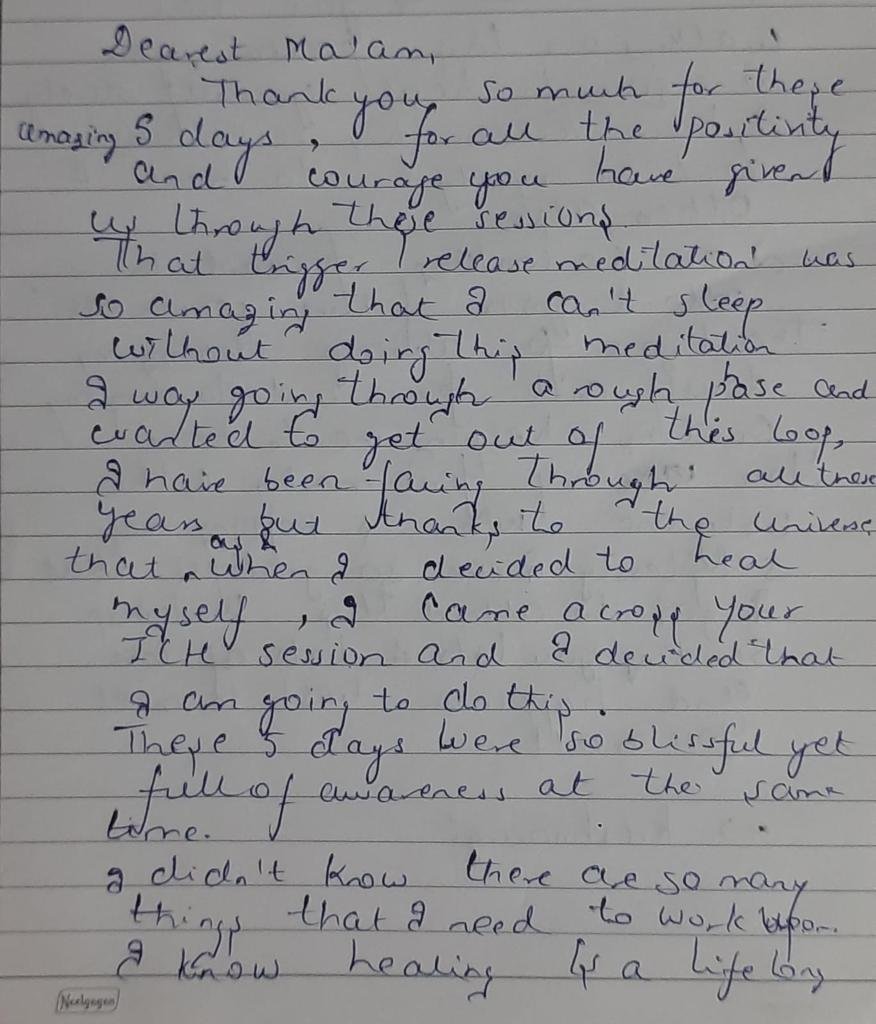 Dearest Ma'am,
Thank you so much for these
amazing 5 days, for all the positivity
and courage you have given
us through these sessions.
That trigger release meditation was
so amazing that I can't sleep
without doing this meditation
I was going through a rough phase and
wanted to get out of this loop,
I have been facing through all these
years but thanks to the universe
that as when I decided to heal
myself, I came across your
ICH session and I decided that
I am going to do this.
These 5 days were so blissful yet
full of awareness at the same
time.
I didn't know there are so many
things that I need to work upon.
I know healing is a life long
Neelgagan